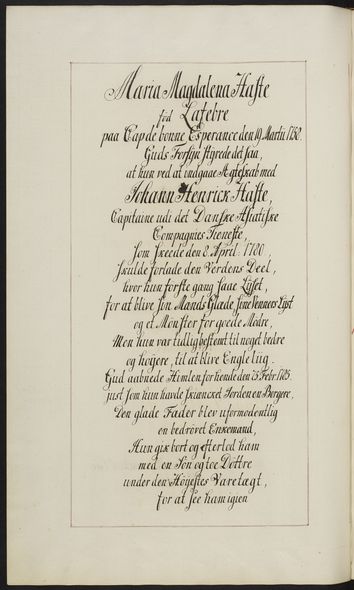 Maria Magdalena Haste
fød Lafebre
paa Cap de bonne Esperance den 19 Martii 1758.
Guds Forsÿn stÿrede det saa,
at hun ved at indgaae Ægteskab med
Johann Henrick Haste,
Capitaine udi det Danske Asiatiske
Compagnies Tieneste,
som skeede den 8. April. 1780,
skulde forlade den Verdens Deel,
hvor hun første gang saae Lÿset,
for at blive sin Mands Glæde, sine Venners Lÿst
og et Mønster for goede Mødre,
Men hun var tidlig bestemt til noget bedre
og høÿere, til at blive Engle liig.
Gud aabnede Himlen for hende den 25 Febr. 1785.
just som hun havde skiencket Jorden en Borgere,
Den glade Fader blev uformodentlig
en bedrøvet Enkemand,
Hun gik bort og efterlod ham
med en Søn og toe Døttre
under den Høÿestes Varetægt,
for at see ham igien